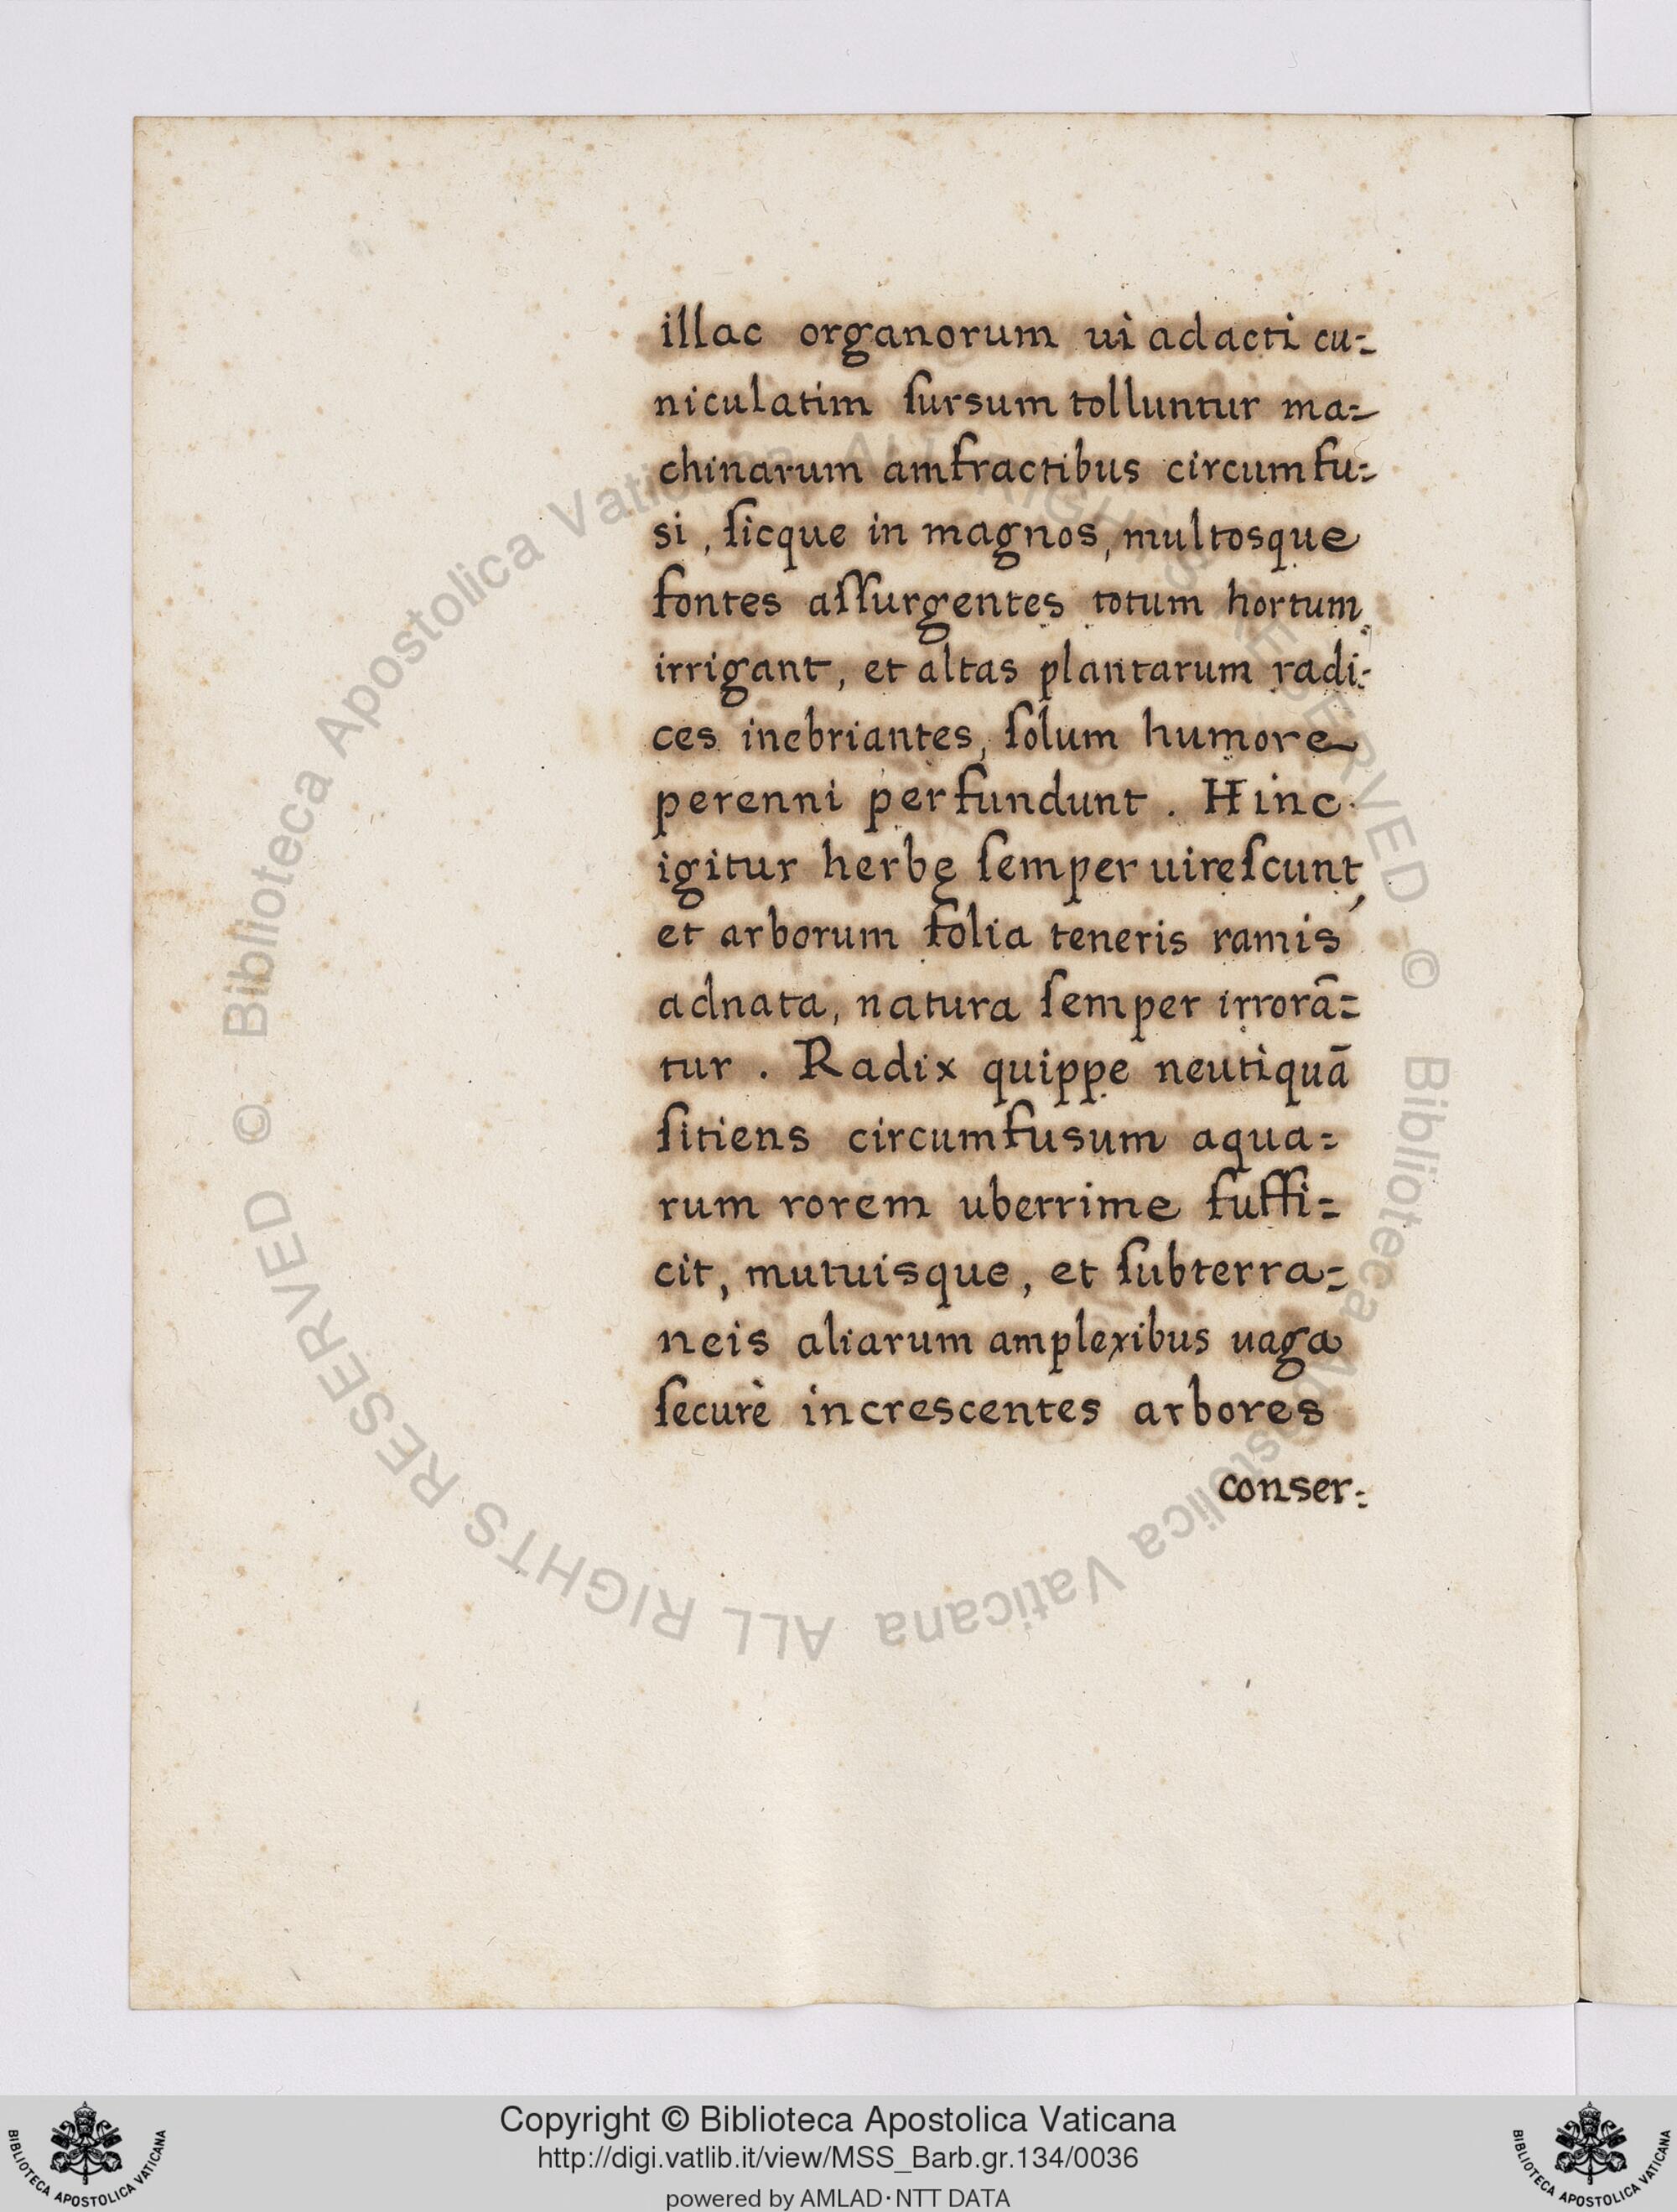 illac organorum uì adacti cu=
niculatim ſursum tolluntur ma=
chinarum amfractibus circumfu=
si, ſicque in magnos, multosque
fontes aſſurgentes totum hortum
irrigant, et altas plantarum radi=
ces inebriantes, ſolum humore
perenni perfundunt. Hinc
igitur herbę ſemper uireſcunt,
et arborum folia teneris ramis
adnata, natura ſemper irrorā=
tur. Radix quippe neutiquā
ſitiens circumfusum aqua=
rum rorem uberrime ſuffi=
cit, mutuisque, et ſubterra=
neis aliarum amplexibus uaga
ſecurè increscentes arbores
conser=
© Biblioteca Apostolica Vaticana ALL RIGHTS RESERVED © Biblioteca Apostolica Vaticana ALL RIGHTS RESERVED
Copyright © Biblioteca Apostolica Vaticana
http://digi.vatlib.it/view/MSS_Barb.gr.134/0036
powered by AMLAD·NTT DATA
BIBLIOTECA APOSTOLICA VATICANA
BIBLIOTECA APOSTOLICA VATICANA